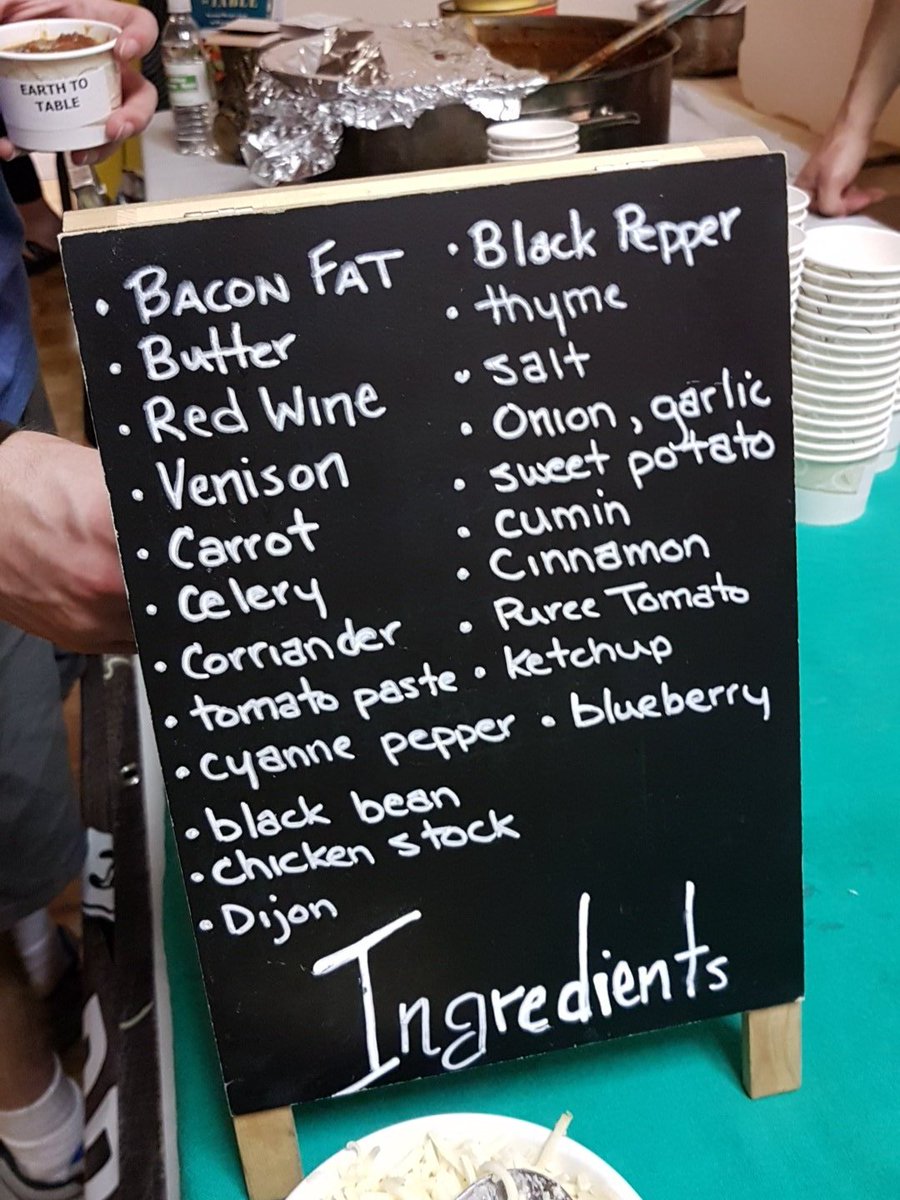 EARTH TO
TABLE
• BACON FAT
• Butter
• Red Wine
• Venison
• Carrot
• Celery
• Corriander
• tomato paste
• cyanne pepper
• black bean
• chicken stock
• Dijon
• Black Pepper
• thyme
• salt
• Onion, garlic
• sweet potato
• cumin
• Cinnamon
• Puree Tomato
• ketchup
• blueberry
Ingredients